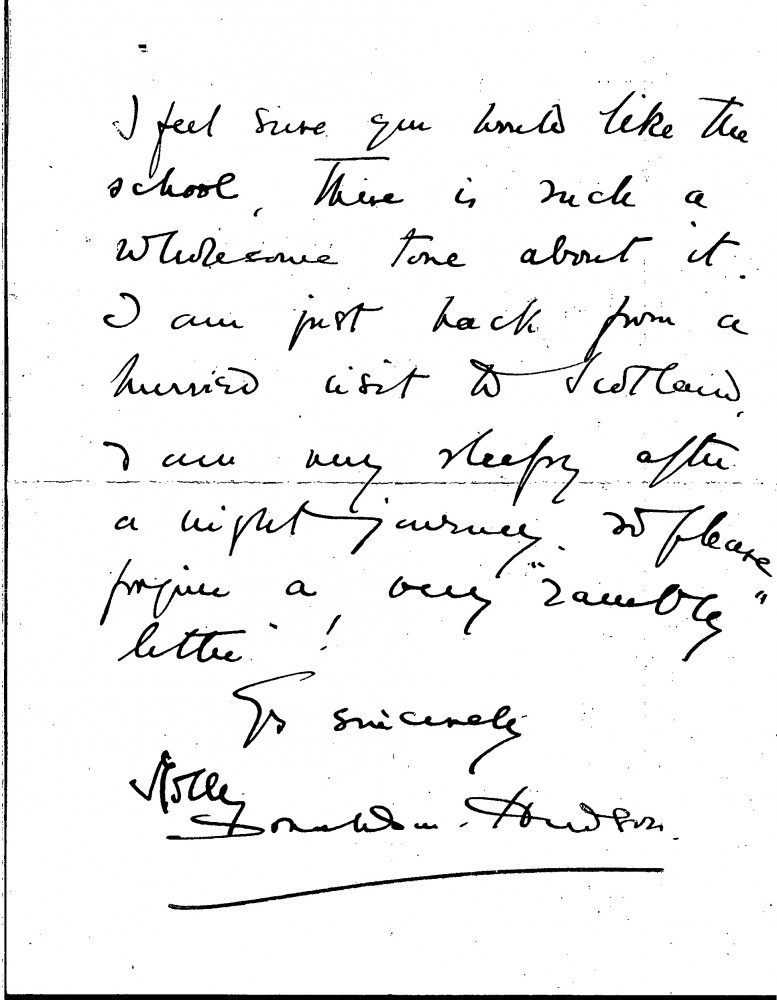 I feel sure you would like the
school, There is such a
wholesome tone about it.
I am just back from a
hurried visit to Scotland,
I am very sleepy after
a night journey. so please
forgive a very "rambly"
letter !
Yrs sincerely
Molly
Donaldson-Hudson.